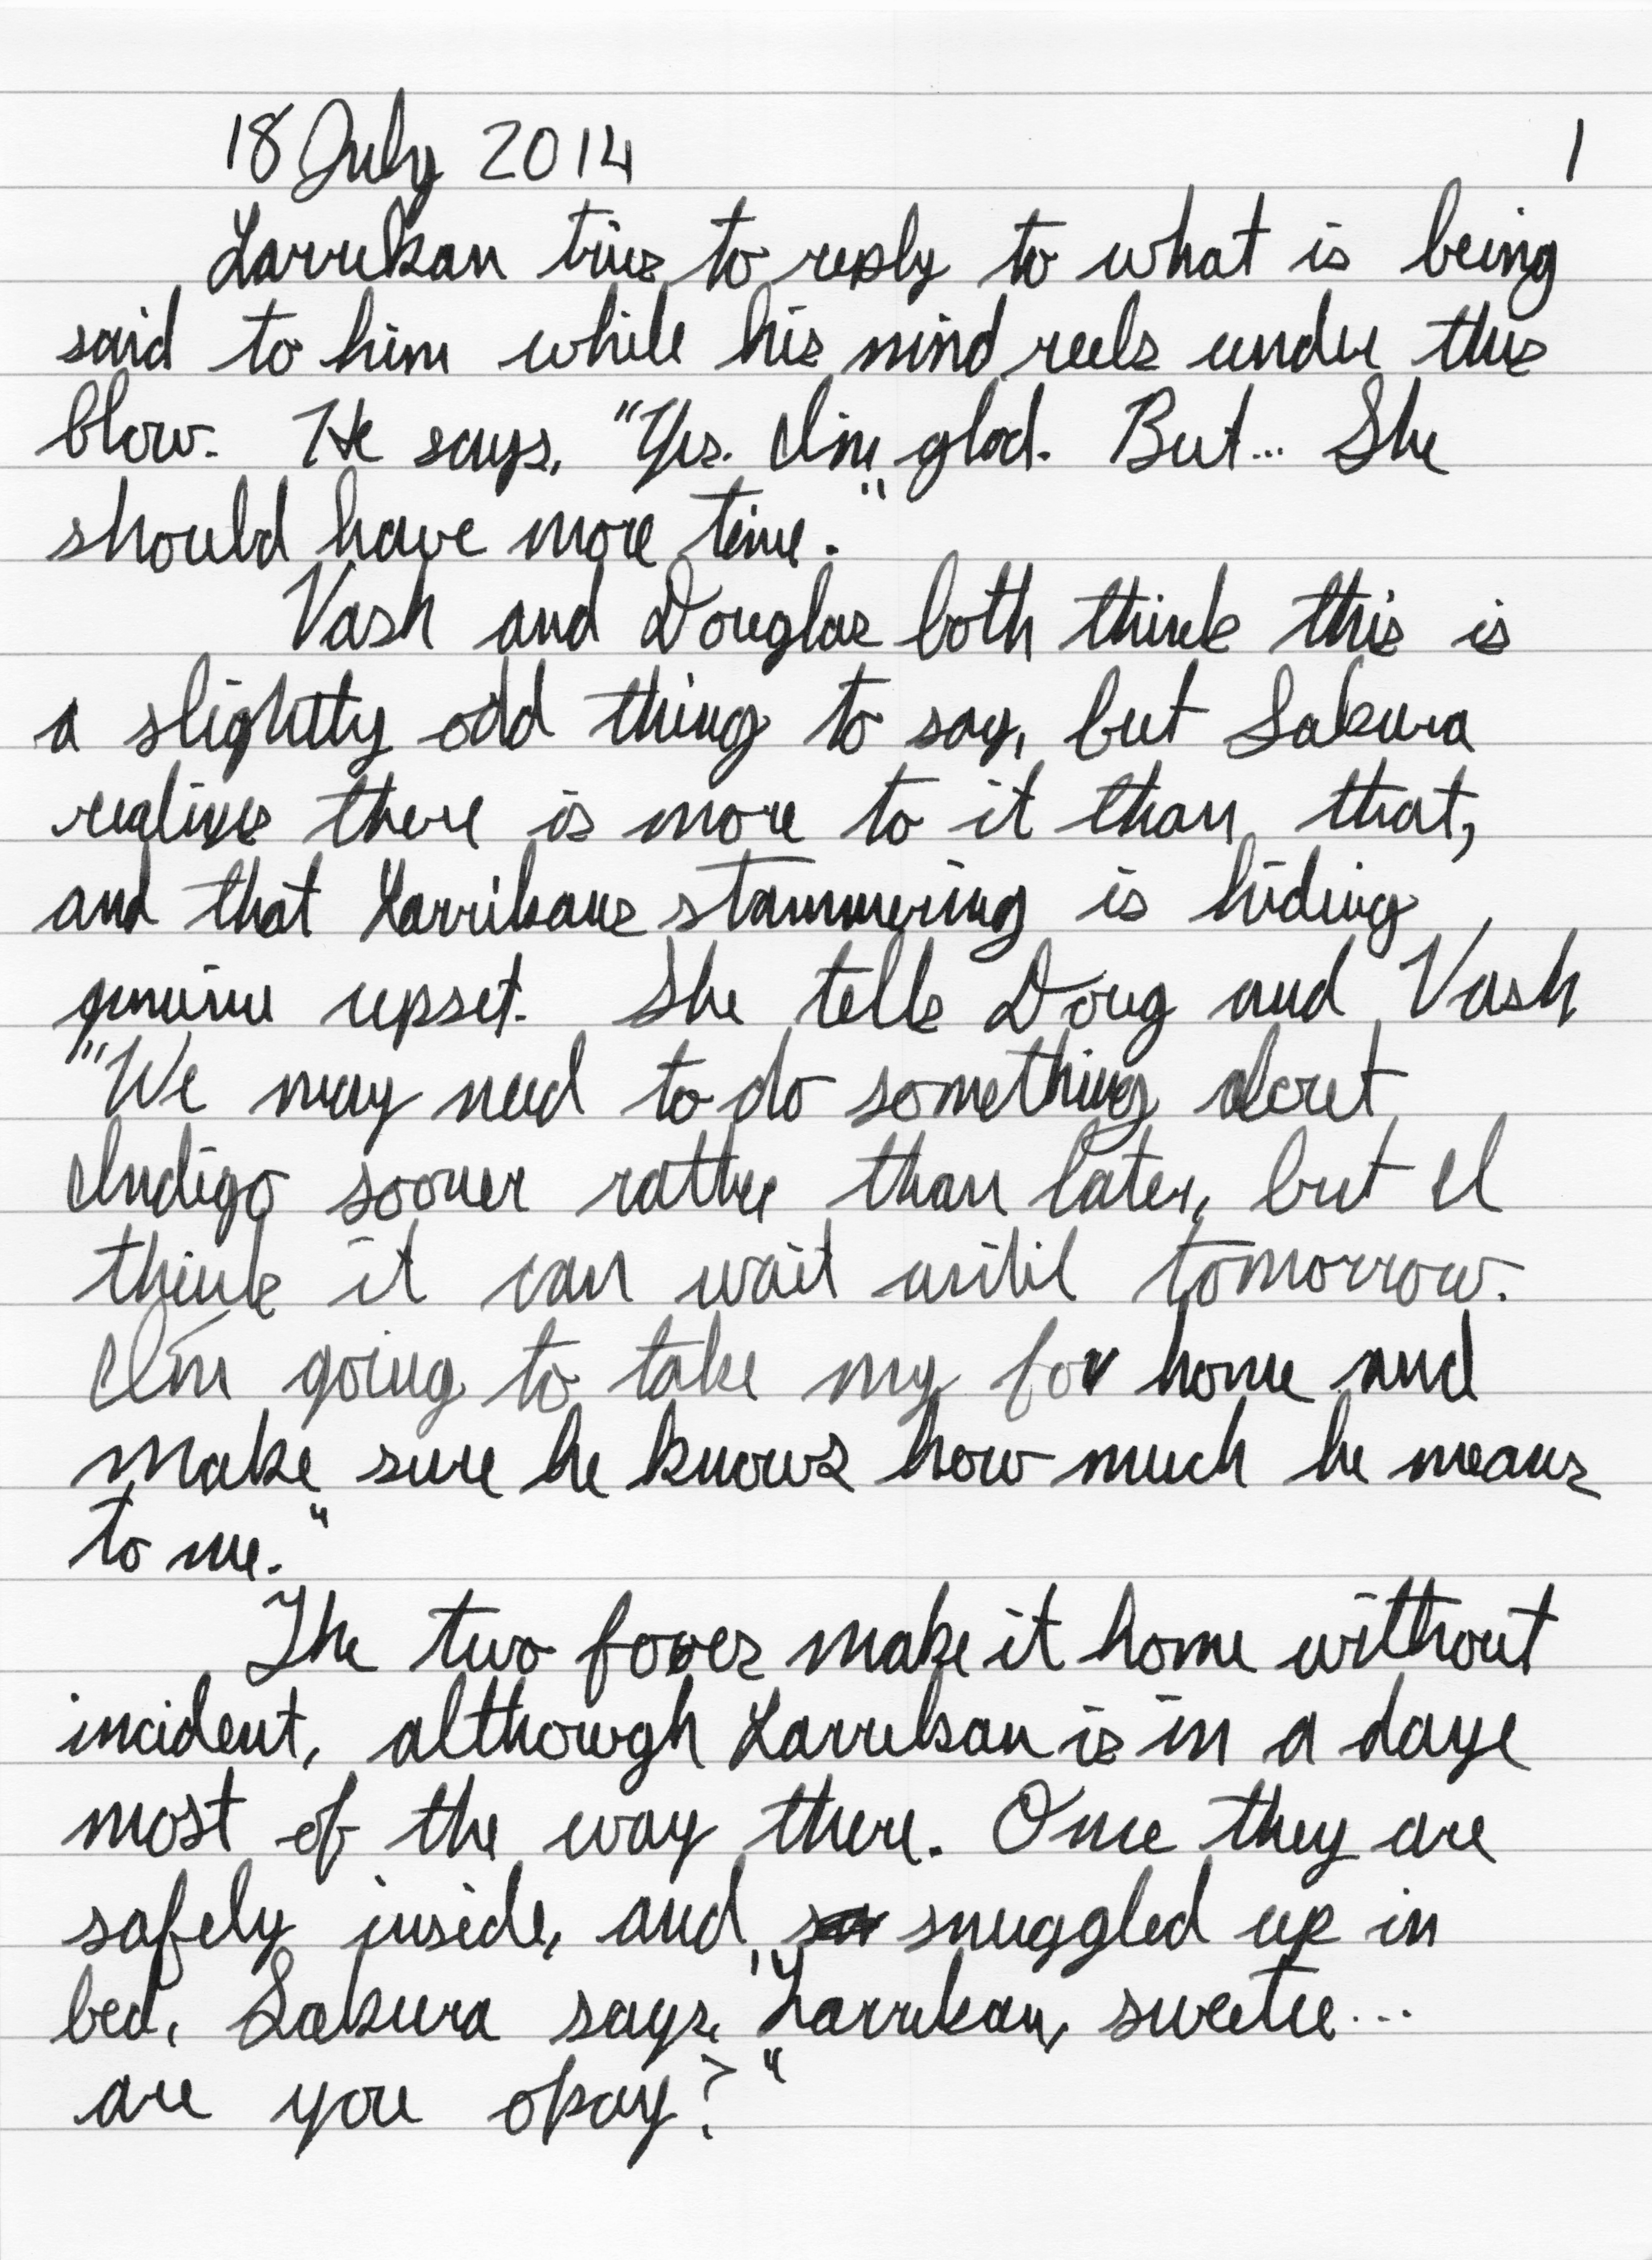 18 July 2014 1
Larrikan tries to reply to what is being
said to him while his mind reels under this
blow. He says, "Yes. I'm glad. But... She
should have more time."
Vash and Douglas both think this is
a slightly odd thing to say, but Sakura
realizes there is more to it than that,
and that Larrikans stammering is hiding
genuine upset. She tells Doug and Vash
"We may need to do something about
Indigo sooner rather than later, but I
think it can wait until tomorrow.
I'm going to take my fox home and
make sure he knows how much he means
to me."
The two foxes make it home without
incident, although Larrikan is in a daze
most of the way there. Once they are
safely inside, and snuggled up in
bed, Sakura says, "Larrikan, sweetie...
are you okay?"